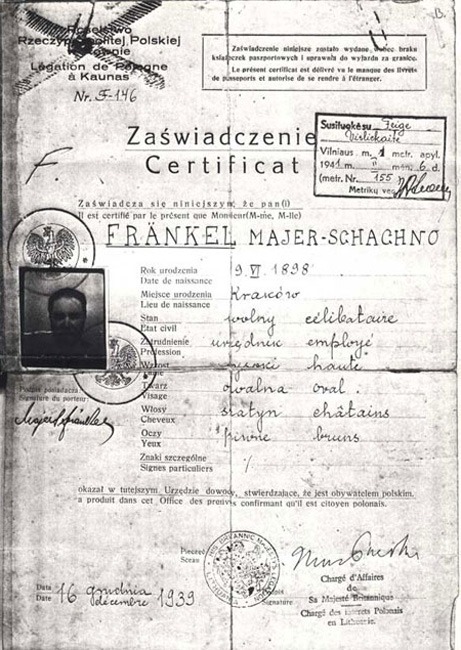 B.
Poselstwo
Rzeczypospolitej Polskiej
w Kownie
Légation de Pologne
à Kaunas
Nr. F-146
Zaświadczenie niniejsze zostało wydane wobec braku
książeczek paszportowych i uprawnia do wyjazdu za granicę.
Le présent certificat est délivré vu le manque des livrets
de passeports et autorise de se rendre à l'étranger.
Susituokęsu Feige
Vilniaus m. 1 metr. apyl.
1941 m. II mėn. 6 d.
(metr. Nr. 155
Metrikų ved.
Zaświadczenie
Certificat
Zaświadcza się niniejszym, że pan(i)
Il est certifié par le présent que Monsieur(M-me, M-lle)
FRÄNKEL MAJER-SCHACHNO
Rok urodzenia 9. VI. 1898
Date de naissance
Miejsce urodzenia Kraków
Lieu de naissance
Stan wolny célibataire
Etat civil
Zatrudnienie urzędnik employé
Profession
Wzrost haute
Twarz owalna oval
Visage
Włosy szatyn châtains
Cheveux
Oczy piwne bruns
Yeux
Znaki szczególne %
Signes particuliers
Podpis posiadacza
Signature du porteur
okazał w tutejszym Urzędzie dowody, stwierdzające, że jest obywatelem polskim.
a produit dans cet Office des preuves confirmant qu'il est citoyen polonais.
Pieczęć
Sceau
Signature
Chargé d'Affaires
de
Sa Majesté Britannique
Chargé des Intérets Polonais
en Lithuanie.
Data 16 grudnia 1939
Date décembre